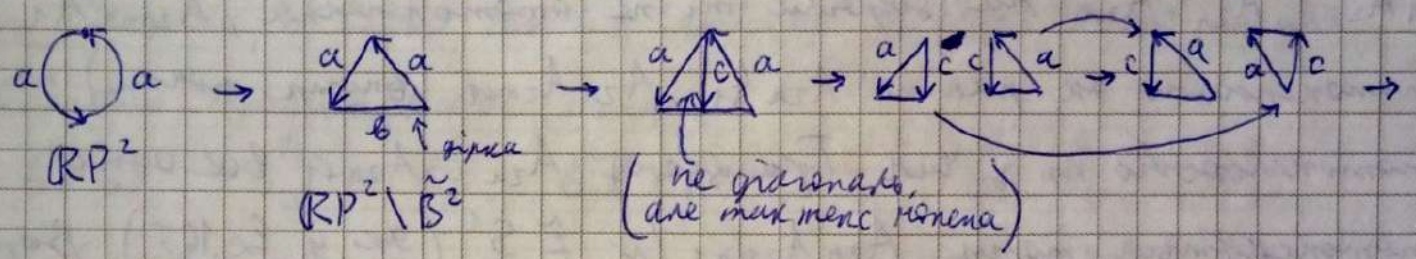 a a → a a → a c a → a c c a → c a a c →
в ↑ дірка
RP²
RP² \ B̃²
(не діагональ,
але так теж можна)